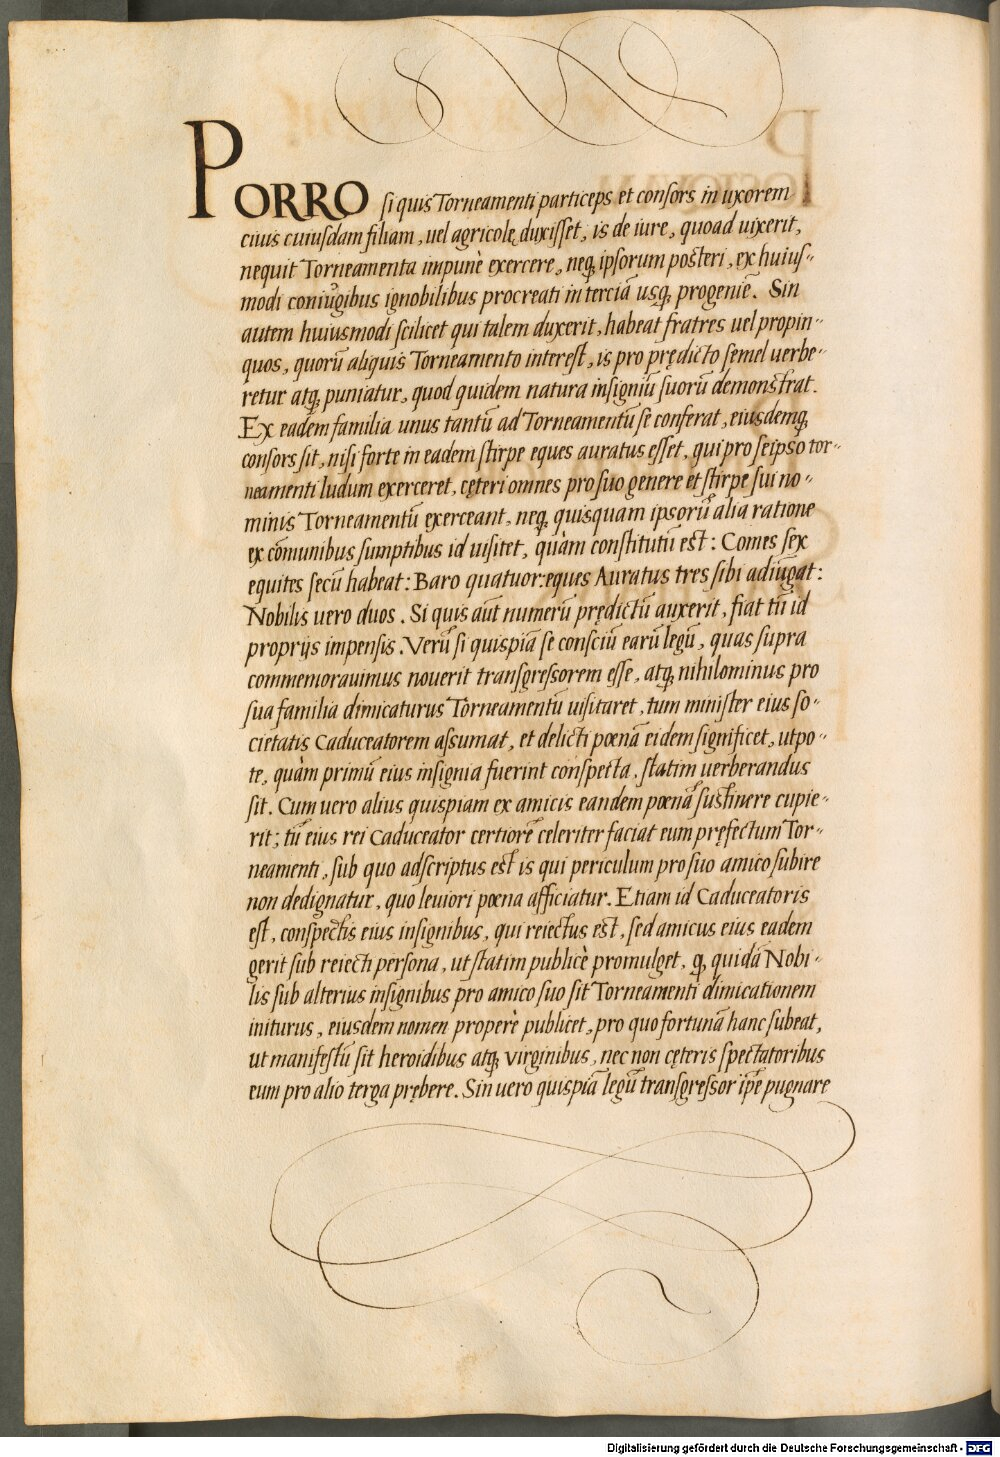 PORRO si quis Torneamenti particeps et consors in uxorem
ciuis cuiusdam filiam, uel agricolę duxisset, is de iure, quoad uixerit,
nequit Torneamenta impunè exercere, neq; ipsorum posteri, ex huius-
modi coniugibus ignobilibus procreati in terciā usq; progeniē. Sin
autem huiusmodi scilicet qui talem duxerit, habeat fratres uel propin-
quos, quorū aliquis Torneamento interest, is pro prędicto semel uerbe-
retur atq; puniatur, quod quidem natura insigniū suorū demonstrat.
Ex eadem familia unus tantū ad Torneamentū se conferat, eiusdemq;
consors sit, nisi forte in eadem stirpe eques auratus esset, qui pro seipso tor-
neamenti ludum exerceret, cęteri omnes pro suo genere et stirpe sui no-
minis Torneamentū exerceant, neq; quisquam ipsorū alia ratione
ex cōmunibus sumptibus id uisitet, quàm constitutū est: Comes sex
equites secū habeat: Baro quatuor: eques Auratus tres sibi adiūgat:
Nobilis uero duos. Si quis aūt numerū prędictū auxerit, fiat tū id
proprijs impensis. Verū si quispiā se consciū earū legū, quas supra
commemorauimus nouerit transgressorem esse, atq; nihilominus pro
sua familia dimicaturus Torneamentū uisitaret, tum minister eius so-
cietatis Caduceatorem assumat, et delicti poenā eidem significet, utpo-
te, quàm primū eius insignia fuerint conspecta, statim uerberandus
sit. Cum uero alius quispiam ex amicis eandem poenā sustinere cupie-
rit; tū eius rei Caduceator certiorē celeriter faciat eum pręfectum Tor-
neamenti, sub quo adscriptus est is qui periculum pro suo amico subire
non dedignatur, quo leuiori poena afficiatur. Etiam id Caduceatoris
est, conspectis eius insignibus, qui reiectus est, sed amicus eius eadem
gerit sub reiecti persona, ut statim publicè promulget, q; quidā Nobi-
lis sub alterius insignibus pro amico suo sit Torneamenti dimicationem
initurus, eiusdem nomen properè publicet, pro quo fortunā hanc subeat,
ut manifestū sit heroidibus atq; virginibus, nec non cęteris spectatoribus
eum pro alio terga prębere. Sin uero quispiā legū transgressor ip̄e pugnare
Digitalisierung gefördert durch die Deutsche Forschungsgemeinschaft - DFG